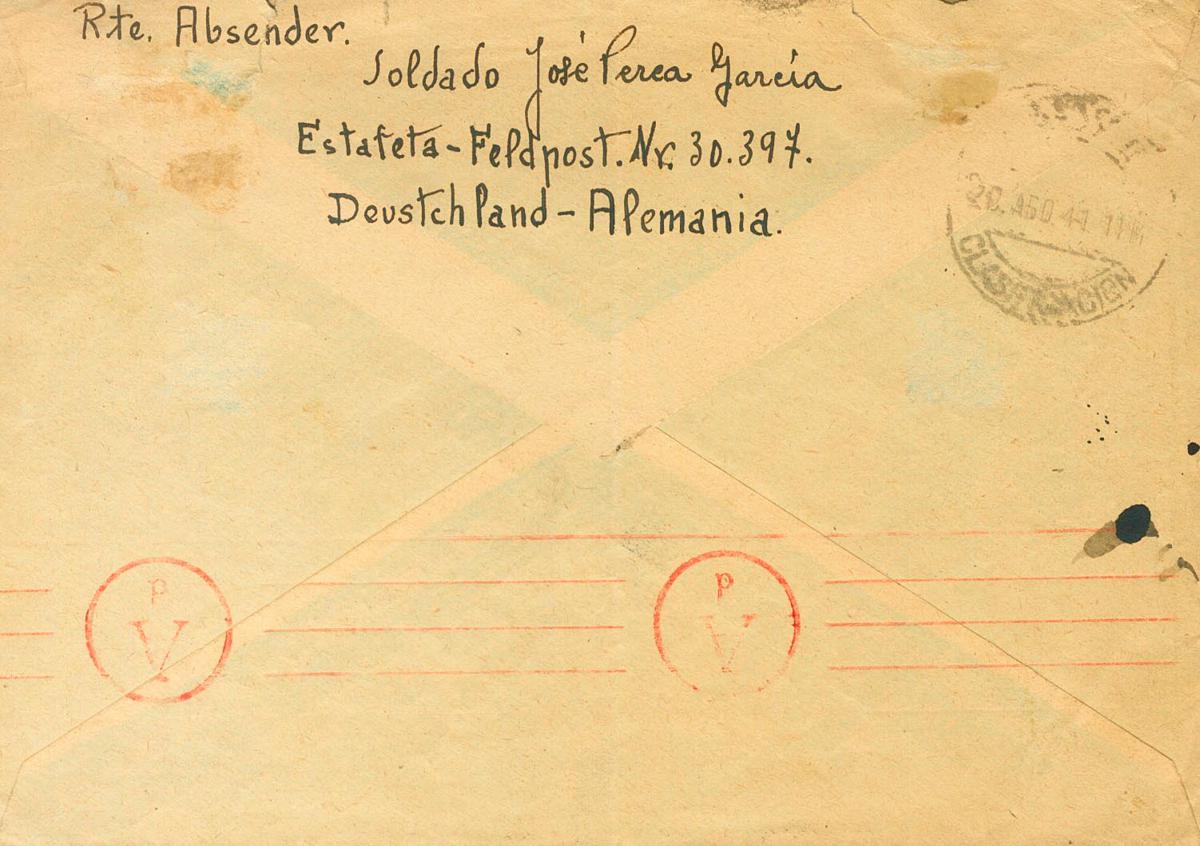 Rte. Absender.
Soldado José Perea García
Estafeta - Feldpost. Nr. 30.397.
Deustchland - Alemania.
CLASIFICACION
p
V
p
V